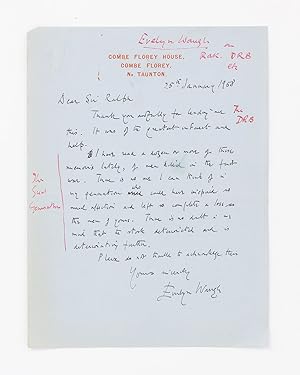 Evelyn Waugh on
Rax. DRB
etc
COMBE FLOREY HOUSE,
COMBE FLOREY,
Nr TAUNTON.
25th January 1958
Dear Sir Ralph
Thank you awfully for lending me
The
DRB
this. It is of the greatest interest and
help.
I have read a dozen or more of those
memoirs lately, of men killed in the first
war. There is no one I can think of in
my generation who could have inspired so
much affection and left so complete a loss as
the men of yours. There is no doubt in my
mind that the stock deteriorated and is
deteriorating further.
Please do not trouble to acknowledge this
Yours sincerely
Evelyn Waugh